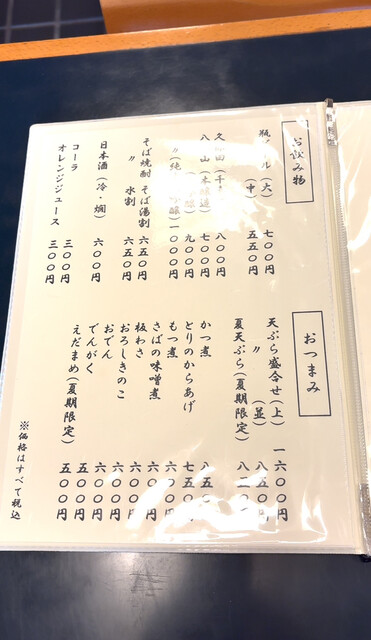 お飲み物
瓶ビール(大) 七〇〇円
(中) 五五〇円
久保田(千寿) 八〇〇円
八海山(本醸造) 七〇〇円
醸) 九〇〇円
〃(純米吟醸) 一〇〇〇円
そば焼酎 そば湯割 六五〇円
〃 水割 六五〇円
日本酒(冷・燗) 六〇〇円
コーラ 三〇〇円
オレンジジュース 三〇〇円
おつまみ
天ぷら盛合せ(上) 一六〇〇円
〃 (並) 八五〇円
夏天ぷら(夏期限定)
かつ煮 八五〇円
とりのからあげ 七五〇円
もつ煮 六〇〇円
さばの味噌煮 六〇〇円
板わさ 六〇〇円
おろしきのこ 六〇〇円
おでん 六〇〇円
でんがく 五〇〇円
えだまめ(夏期限定) 五〇〇円
※価格はすべて税込